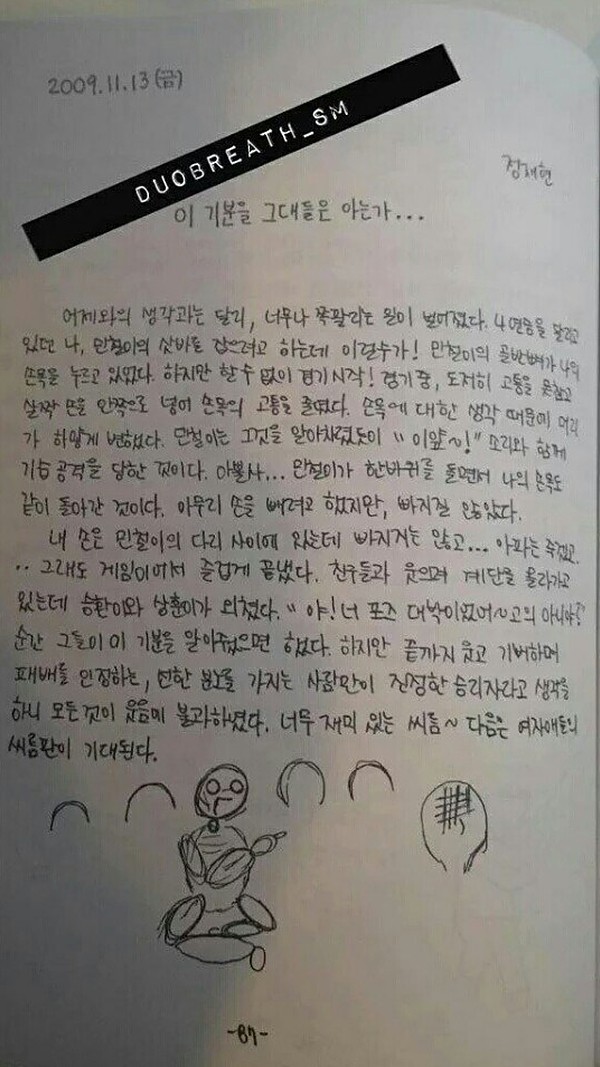 2009.11.13(금)
DUOBREATH_SM
장재현
이 기분을 그대들은 아는가...
어제와의 생각과는 달리, 너무나 쪽팔리는 일이 벌어졌다. 4연승을 달리고
있던 나, 민철이의 샅바를 잡으려고 하는데 이럴수가! 민철이의 골반뼈가 나의
손목을 누르고 있었다. 하지만 할 수 없이 경기 시작! 경기 중, 도저히 고통을 못참고
살짝 손을 안쪽으로 넣어 손목의 고통을 줄였다. 손목에 대한 생각 때문에 머리
가 하얗게 변했다. 민철이는 그것을 알아차렸듯이 "이얍~!" 소리와 함께
기습 공격을 당한 것이다. 아뿔사... 민철이가 한바퀴를 돌면서 나의 손목도
같이 돌아간 것이다. 아무리 손을 빼려고 했지만, 빠지질 않았다.
내 손은 민철이의 다리 사이에 있는데 빠지지는 않고... 아파는 죽겠고.
.. 그래도 게임이어서 즐겁게 끝냈다. 친구들과 웃으며 계단을 올라가고
있는데 승환이와 상훈이가 외쳤다. "야! 너 포즈 대박이었어~고의 아니야?"
순간 그들이 이 기분을 알아줬으면 했다. 하지만 끝까지 웃고 기뻐하며
패배를 인정하는, 선한 분노를 가지는 사람만이 진정한 승리자라고 생각을
하니 모든것이 웃음에 불과하였다. 너무 재미 있는 씨름~ 다음은 여자애들의
씨름판이 기대된다.
-87-